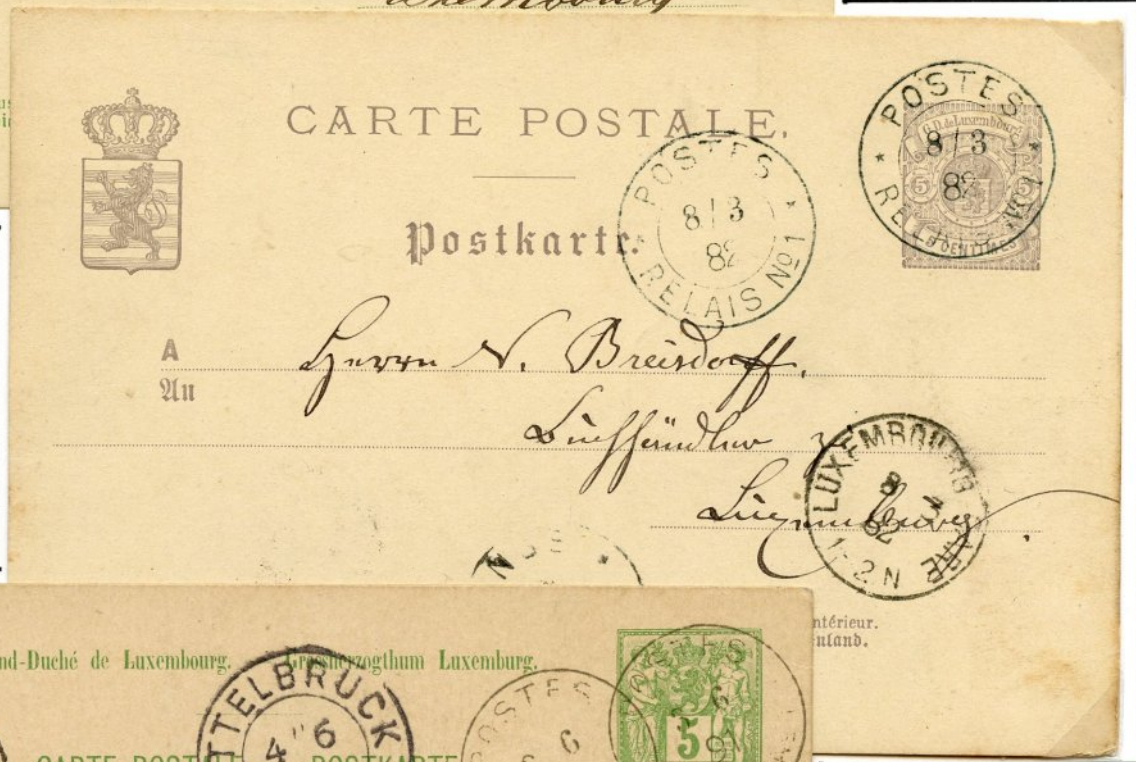 CARTE POSTALE.
Postkarte.
POSTES
8 / 3
82
RELAIS No 1
POSTES
8 / 3
82
G. D. de Luxembourg
5
5 CENTIMES
A
An
Herrn N. Breisdorff.
Buchhändler
Luxemburg.
LUXEMBOURG GARE
8 3
82
1-2 N
ntérieur.
nland.
nd-Duché de Luxembourg. Grossherzogthum Luxemburg.
TTELBRUCK
4 6
POSTES
6
5
6
91
CARTE POSTALE POSTKARTE